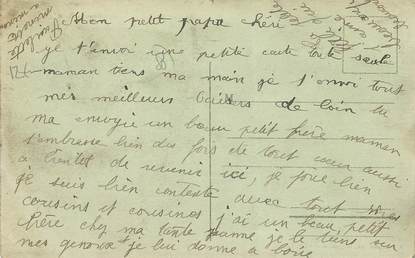 Mon petit papa chéri
je t'envoi une petite carte toute seule
maman tiens ma main je t'envoi tout
mes meilleurs baisers de loin tu
ma envoyié un beau petit frère maman
t'embrasse bien des fois de tout cœur aussi
a bientot de revenir ici, je joue bien
je suis bien contente avec tout
cousins et cousines j'ai un beau petit
frère chez ma tante je le tiens sur
mes genoux je lui donne a boire
Paulette